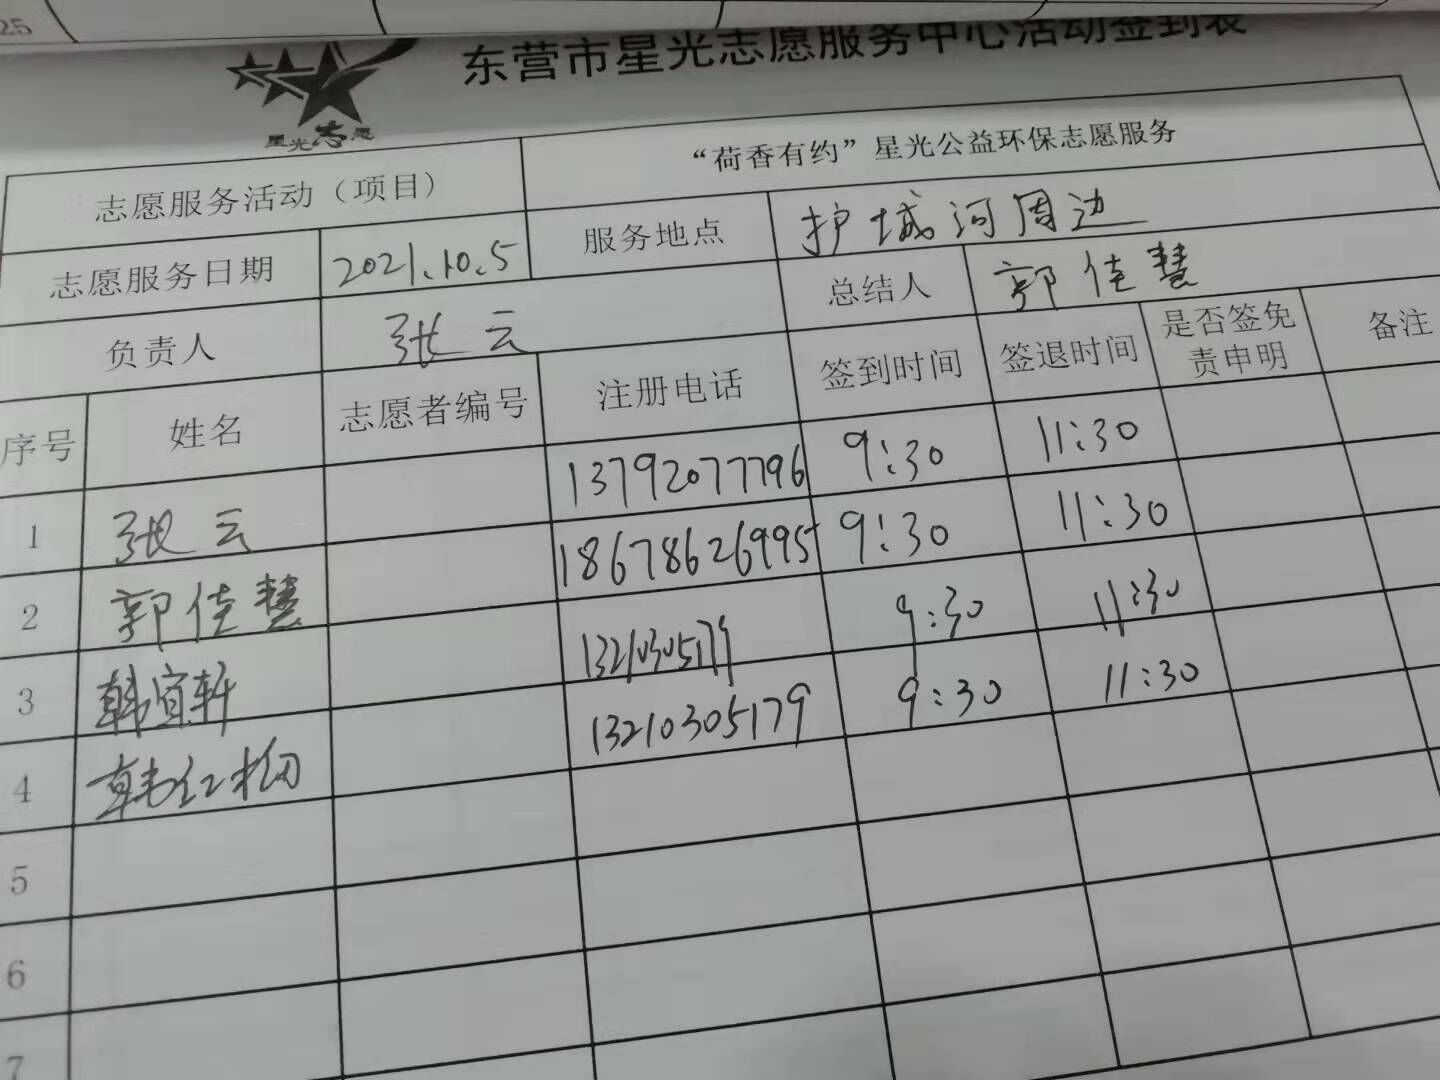 25
东营市星光志愿服务中心活动签到表
星光志愿
志愿服务活动（项目） “荷香有约”星光公益环保志愿服务
志愿服务日期 2021.10.5 服务地点 护城河周边
负责人 张云 总结人 郭佳慧
序号 姓名 志愿者编号 注册电话 签到时间 签退时间 是否签免责申明 备注
1 张云 13792077796 9:30 11:30
2 郭佳慧 18678626995 9:30 11:30
3 韩宜轩 13210305179 9:30 11:30
4 韩红 13210305179 9:30 11:30
5
6
7